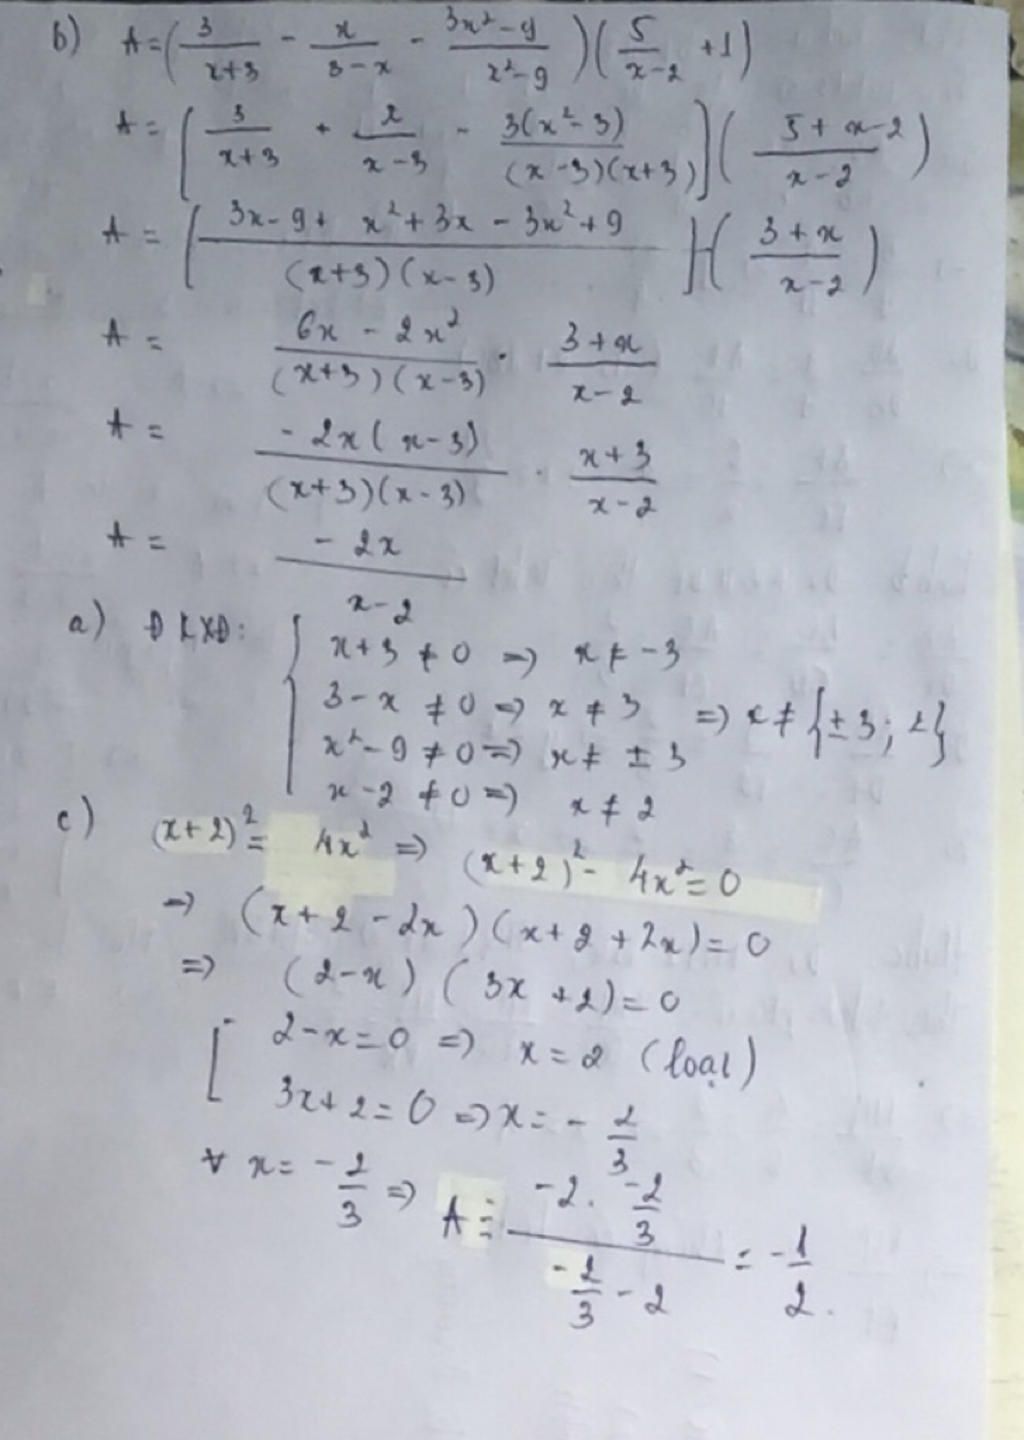 b) A = (3/(x+3) - x/(3-x) - (3x²-9)/(x²-9))(5/(x-2) + 1)
A = [3/(x+3) + x/(x-3) - 3(x²-3)/((x-3)(x+3))]((5+x-2)/(x-2))
A = [(3x-9+x²+3x-3x²+9)/((x+3)(x-3))]·((3+x)/(x-2))
A = (6x-2x²)/((x+3)(x-3)) · (3+x)/(x-2)
A = -2x(x-3)/((x+3)(x-3)) · (x+3)/(x-2)
A = -2x/(x-2)
a) ĐKXĐ: { x+3 ≠ 0 => x ≠ -3
3-x ≠ 0 => x ≠ 3 => x ≠ {±3; 2}
x²-9 ≠ 0 => x ≠ ±3
x-2 ≠ 0 => x ≠ 2
c) (x+2)² = 4x² => (x+2)² - 4x² = 0
=> (x+2-2x)(x+2+2x) = 0
=> (2-x)(3x+2) = 0
[ 2-x = 0 => x = 2 (loại)
3x+2 = 0 => x = -2/3
x = -2/3 => A = (-2 · -2/3)/(-2/3 - 2) = -1/2.